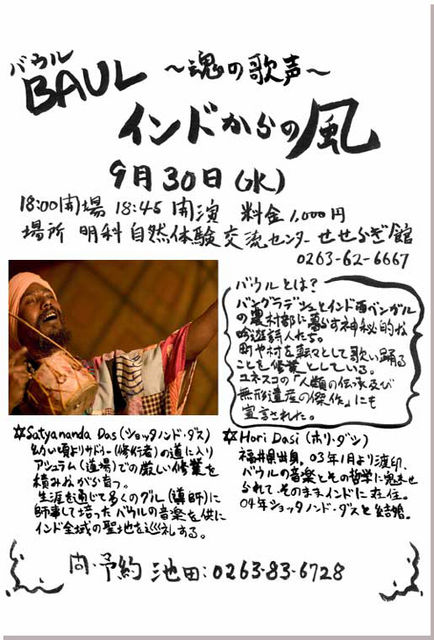 バウル
BAUL 〜魂の歌声〜
インドからの風
9月30日(水)
18:00開場 18:45 開演 料金 1,000円
場所 明科 自然体験交流センター せせらぎ館
0263-62-6667
バウルとは?
バングラデシュとインド西ベンガル
の農村部に暮らす神秘的な
吟遊詩人たち。
町や村を転々として歌い踊る
ことを修業としている。
ユネスコの「人類の伝承及び
無形遺産の傑作」にも
宣言された。
☆Satyananda Das (ショッタノンド・ダス)
幼い頃よりサドゥー(修行者)の道に入り
アシュラム(道場)での厳しい修業を
積みながら育つ。
生涯を通じて多くのグル(講師)に
師事して培ったバウルの音楽を供に
インド全域の聖地を巡礼する。
☆Hori Dasi (ホリ・ダシ)
福井県出身。03年1月より渡印、
バウルの音楽とその哲学に魅せ
られて、そのままインドに在住。
04年ショッタノンド・ダスと結婚。
問・予約 池田:0263-83-6728